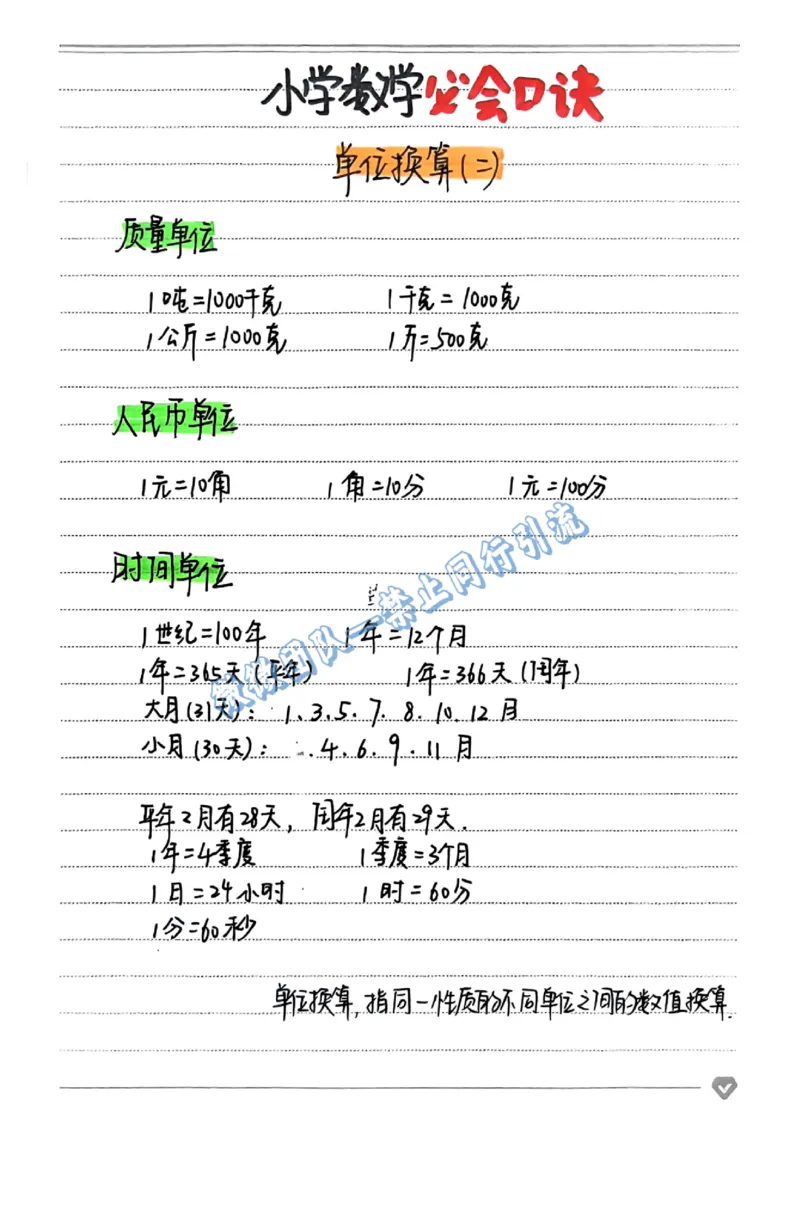 小学数学必会口诀
单位换算(二)
质量单位
1吨=1000千克 1千克=1000克
1公斤=1000克 1斤=500克
人民币单位
1元=10角 1角=10分 1元=100分
时间单位
1世纪=100年 1年=12个月
1年=365天(平年) 1年=366天(闰年)
大月(31天): 1.3.5.7.8.10.12月
小月(30天): .4.6.9.11月
平年2月有28天, 闰年2月有29天.
1年=4季度 1季度=3个月
1日=24小时 1时=60分
1分=60秒
单位换算,指同一性质的不同单位之间的数值换算.
团队—禁止同行引流